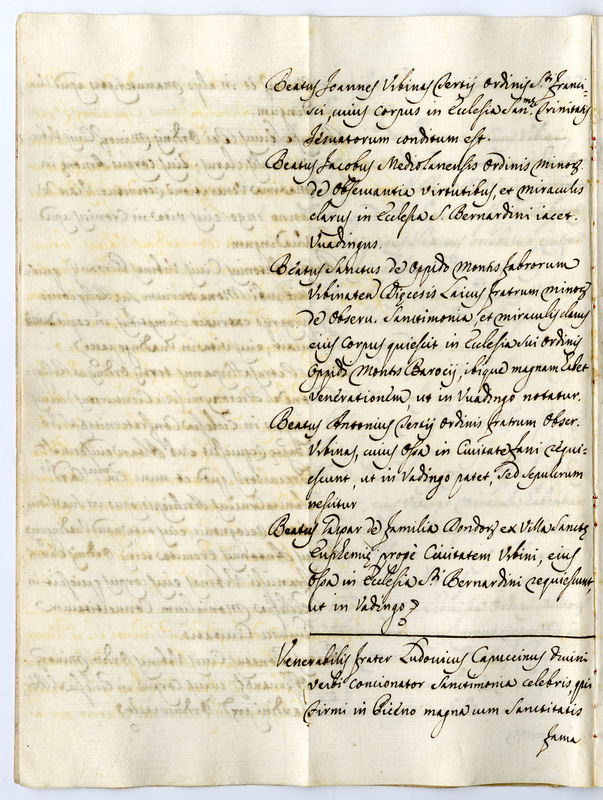 Beatus Joannes Vrbinas Tertij Ordinis S.ti Franci-
sci, cuius corpus in Ecclesia San.mæ Trinitatis
Jesuatorum conditum est.
Beatus Jacobus Mediolanensis Ordinis minorz.
de Obseruantia virtutibus, et miraculis
clarus in Ecclesia S. Bernardini iacet.
Vuadingus.
Beatus Sanctus de Oppido Montis fabrorum
Vrbinaten. Diœcesis Laicus fratrum minorz
de Obseru. Sanctimonia, et miraculis clarus
eius Corpus quiescit in Ecclesia sui ordinis
Oppidi Montis Barocij, ibique magnam habet
venerationem, ut in Vuadingo notatur.
Beatus Antonius Tertij Ordinis fratrum Obser.
Vrbinas, cuius Ossa in Ciuitate fani requi-
escunt, ut in Vadingo patet, Sed sepulcrum
nescitur
Beatus Gaspar de familia Bondorz ex Villa Sanctę
Eufhemię propè Ciuitatem Vrbini, eius
Ossa in Ecclesia S.ti Bernardini requiescunt,
ut in Vadingo
Venerabilis frater Ludouicus Capuccinus diuini
verbi concionator Sanctimonia celebris, qui
Firmi in Piceno magna cum Sanctitatis
fama